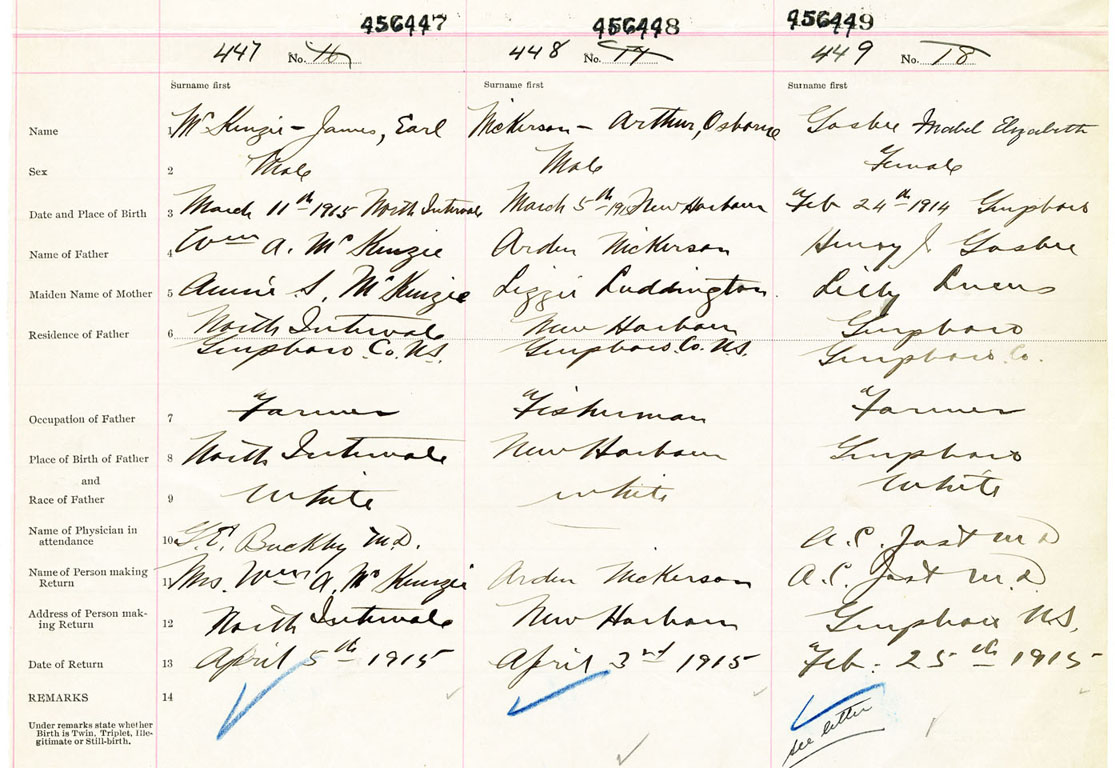 456447 456448 456449
447 No. 448 No. 449 No. 78
Surname first Surname first Surname first
Name 1 McKenzie - James, Earl Nickerson - Arthur, Osborne Gosbee Mabel Elizabeth
Sex 2 Male Male Female
Date and Place of Birth 3 March 11th 1915 North Intervale March 5th 1915 New Harbour Feb 24th 1914 Guysboro
Name of Father 4 Wm A. McKenzie Arden Nickerson Henry J. Gosbee
Maiden Name of Mother 5 Annie S. McKenzie Lizzie Luddington Lilly
Residence of Father 6 North Intervale New Harbour Guysboro
Guysboro Co. N.S. Guysboro Co. N.S. Guysboro Co.
Occupation of Father 7 Farmer Fisherman Farmer
Place of Birth of Father 8 North Intervale New Harbour Guysboro
and
Race of Father 9 White White White
Name of Physician in
attendance 10 G.E. Buckley M.D. A.C. Jost M D
Name of Person making
Return 11 Mrs. Wm A. McKenzie Arden Nickerson A.C. Jost M.D
Address of Person mak-
ing Return 12 North Intervale New Harbour Guysboro N.S.
Date of Return 13 April 5th 1915 April 3rd 1915 Feb. 25th 1915
REMARKS 14
see letter
Under remarks state whether
Birth is Twin, Triplet, Ille-
gitimate or Still-birth.